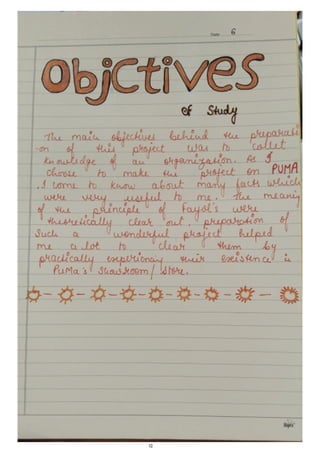 Date 6
ObjCtives
of Study
The main objectives behind the preparati
-on of this project was to collet
knowledge of an organization. As I
Choose to make the project on PUMA
. I come to know about many facts which
were very useful to me. The meaning
of the principle of Fayol's were
theoretically clear out. preparation of
Such a wonderful project helped
me a lot to clear them by
practically their existence in
Puma's Showroom/ Store.
12